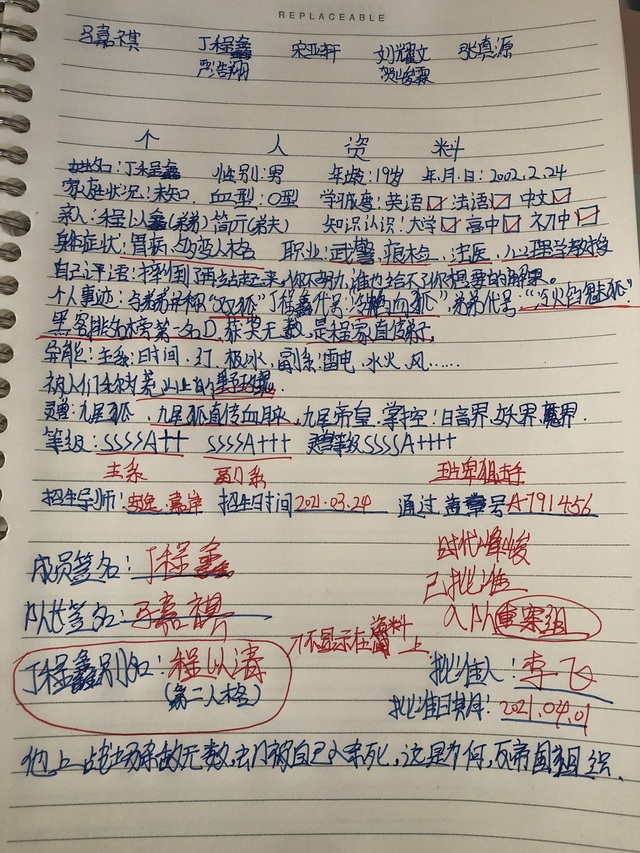 REPLACEABLE
马嘉祺 丁程鑫 宋亚轩 刘耀文 张真源
严浩翔 贺峻霖
个人资料
姓名:丁程鑫 性别:男 年龄:19岁 年.月.日:2002.2.24
家庭状况:未知. 血型:O型 学习成度:英语☑ 法语☑ 中文☑
亲人:程以鑫(弟弟)简亓(弟夫) 知识认识:大学☑ 高中☑ 初中☑
身体症状:胃病,幻变人格 职业:武警.痕检.法医.心理学教授
自己评语:摔倒再站起来,你不努力,谁也给不了你想要的结果。
个人事迹:与弟弟并称"双狐"丁程鑫代号:"血狐"弟弟代号:"魅狐"
黑客排名榜第一名D.获奖无数,是程家直传弟子.
异能:主系:时间.幻.极冰,副系:雷电.水火.风……
被人们称为山上的野玫瑰.
灵兽:九尾狐.九尾狐直传血脉,九尾帝皇.掌控:音界.妖界.魔界.
等级:SSSSA++ SSSSA+++ 灵兽等级SSSSA++++
主系 副系 王牌狙击手
招生导师: 招生时间2021.03.24 通过 号A-791456
成员签名:丁程鑫
时代峰峻
已批准
队长签名:马嘉祺
入队重案组
不显示在资料上
丁程鑫别名:程以涛
(第二人格)
批准人:李飞
批准日期:2021.04.01
他上战场杀敌无数,去门被自己人杀死,这是为何,瓦帝国组织.